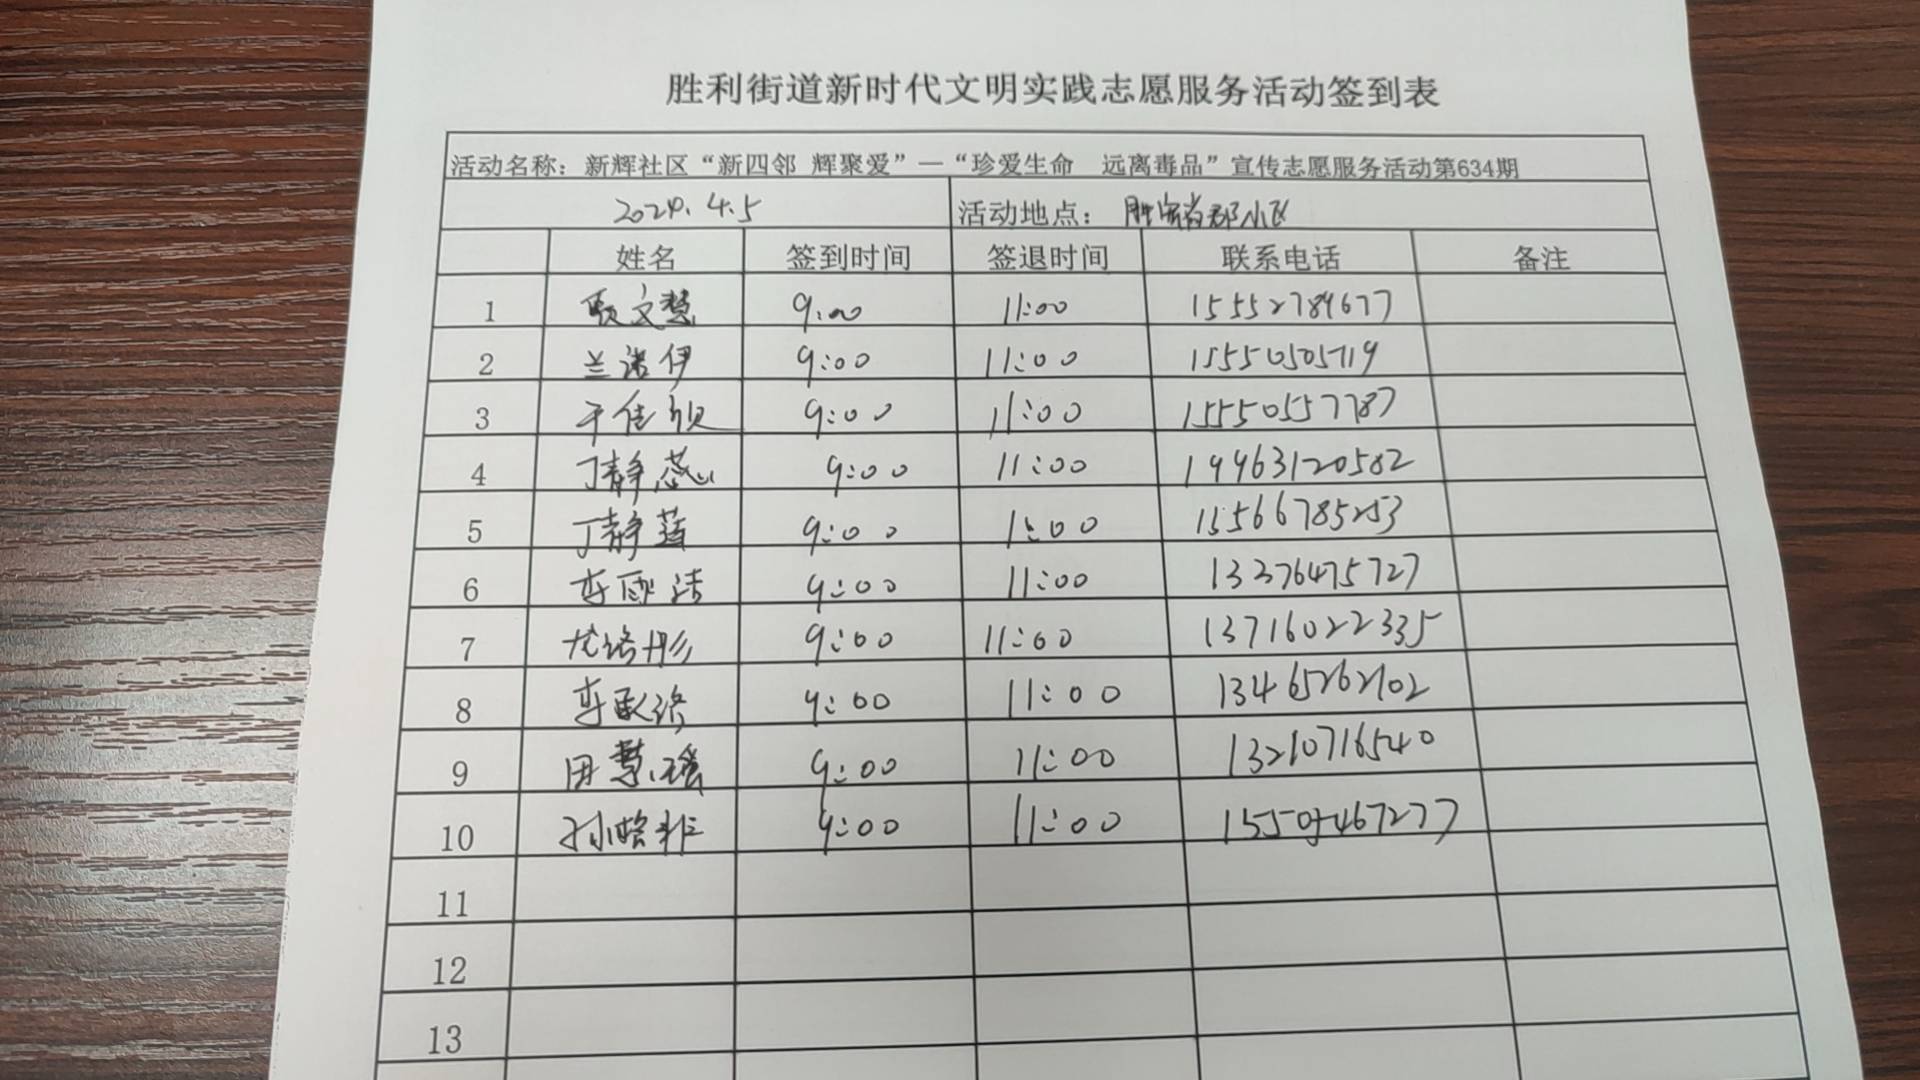 胜利街道新时代文明实践志愿服务活动签到表
活动名称：新辉社区“新四邻 辉聚爱”—“珍爱生命 远离毒品”宣传志愿服务活动第634期
2024.4.5 活动地点： 小区
姓名 签到时间 签退时间 联系电话 备注
1 文慧 9:00 11:00 15552789677
2 兰诺伊 9:00 11:00 15550505719
3 于佳 9:00 11:00 15550557787
4 丁静蕊 9:00 11:00 19963120582
5 丁静 9:00 11:00 15566785253
6 李 洁 9:00 11:00 13376475727
7 尤洛彤 9:00 11:00 13716022335
8 李 9:00 11:00 13465262102
9 田慧瑶 9:00 11:00 13210716540
10 孙 9:00 11:00
11
12
13